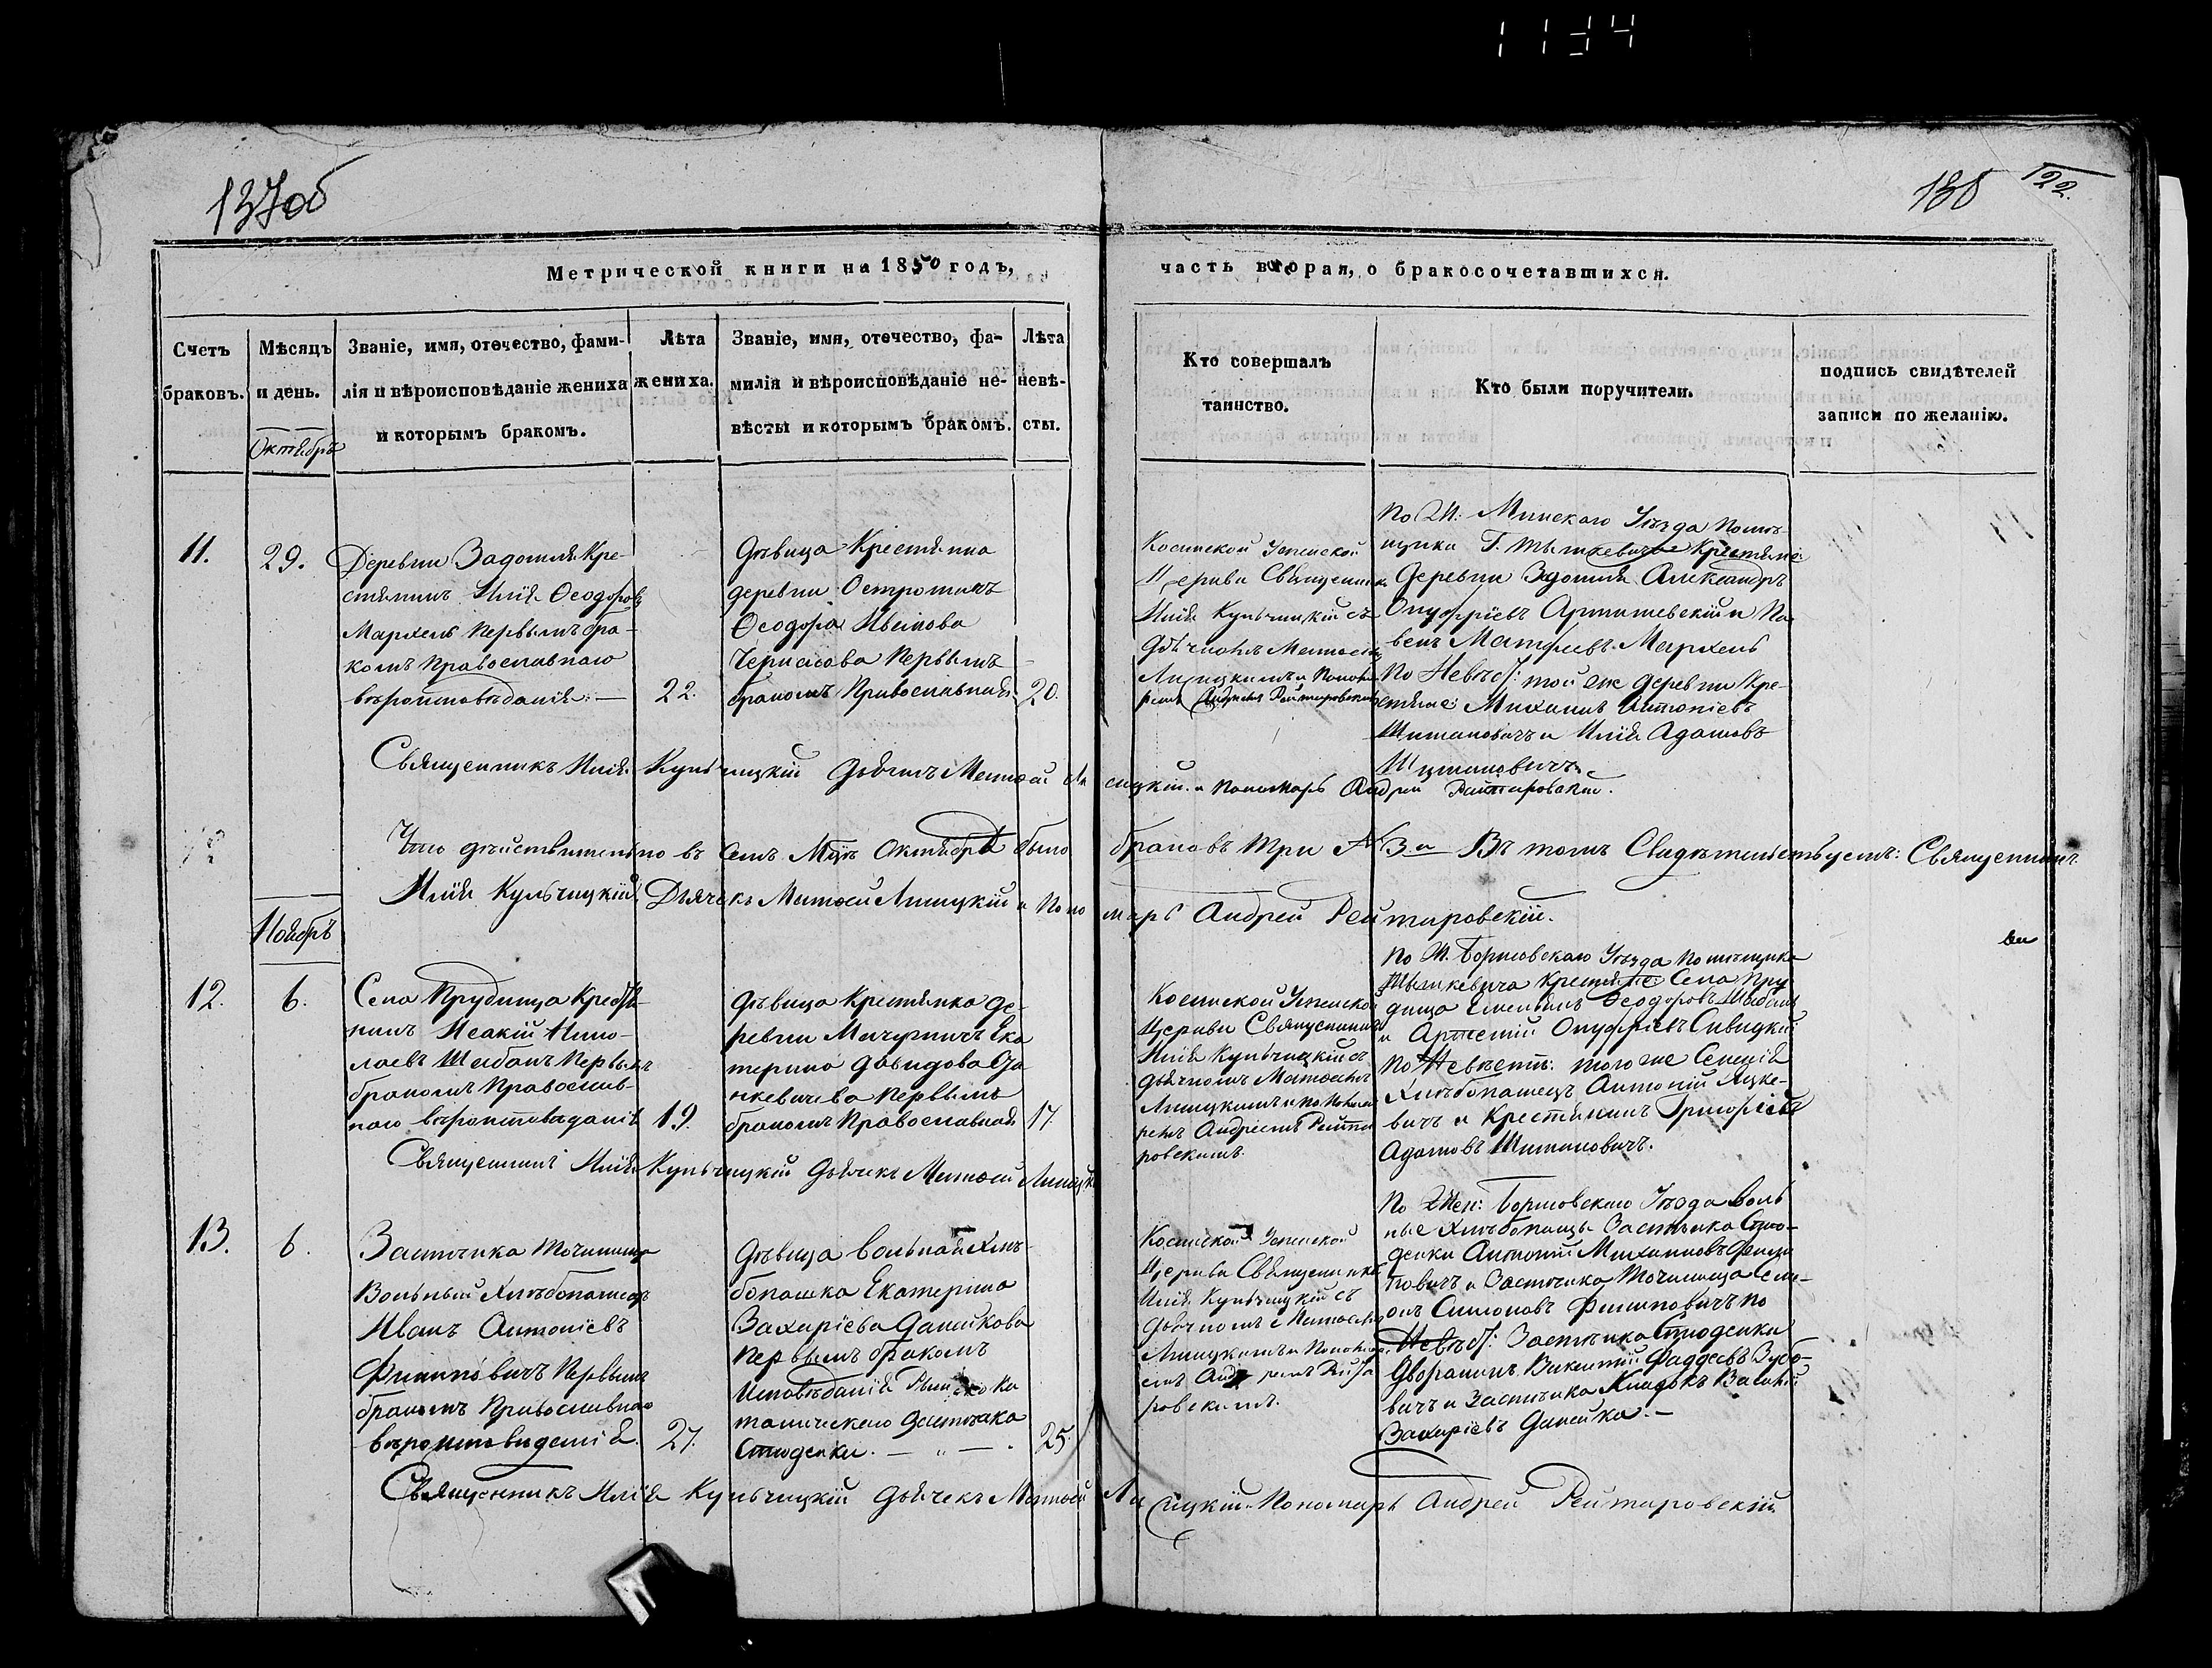 1134
137об
138 122.
Метрической книги на 1850 годъ,
часть вторая, о бракосочетавшихся.
Счетъ браковъ.
Мѣсяцъ и день.
Званіе, имя, отечество, фами-
лія и вѣроисповѣданіе жениха
и которымъ бракомъ.
Лѣта
жениха.
Званіе, имя, отечество, фа-
милія и вѣроисповѣданіе не-
вѣсты и которымъ бракомъ.
Лѣта
невѣ-
сты.
Кто совершалъ
таинство.
Кто были поручители.
подпись свидѣтелей
записи по желанію.
Октябрь
11.
29.
Деревни Задомля Кре-
стянинъ Илія Ѳеодоровъ
Мархель первымъ бра-
комъ православнаго
вѣроисповѣданія. —
22.
Дѣвица Крестянка
деревни
Ѳеодора Иванова
первымъ
бракомъ Православная
20.
Косинской Успенской
Церкви Священникъ
Илія Кульчицкій съ
дьячкомъ Матѳеемъ
Лисицкимъ и Понома-
ремъ Андреемъ Рейтаровскимъ
По Жен: Минскаго Уѣзда помѣ-
щика Г. Тышкевича Крестяне
деревни Задомля Александръ
Онуфріевъ и Па-
велъ Матфеевъ Мархель
По Невѣст: той же деревни Кре-
стяне: Михаилъ Антоніевъ
Шитиковичъ и Илія Адамовъ
Священникъ Илія Кульчицкій Дьячекъ Матѳей Лисицкій и Пономарь Андрей Рейтаровскій.
Что дѣйствительно въ семъ Мцѣ Октябрѣ было браковъ три № 3-й Въ томъ Свидѣтельствуемъ: Священникъ
Илія Кульчицкій, Дьячекъ Матѳей Лисицкій и Пономарь Андрей Рейтаровскій.
Ноябрь
12.
6.
Села Прудища Крестя-
нинъ Исакій Нико-
лаевъ Шабанъ первымъ
бракомъ Православ-
наго вѣроисповѣданія
19.
Дѣвица Крестянка де-
ревни Ека-
терина Давидова
первымъ
бракомъ Православная
17.
Косинской Успенской
Церкви Священникъ
Илія Кульчицкій съ
дьячкомъ Матѳеемъ
Лисицкимъ и Понома-
ремъ Андреемъ Рейта-
ровскимъ.
По Ж. Борисовскаго Уѣзда Помѣщика
Тышкевича Крестяне Села Пру-
дища Емельянъ Ѳеодоровъ Шабанъ
и Онуфріевъ
По Невѣстѣ: того же Селенія
Хлѣбопашецъ Антоній Яцке-
вичъ и Крестянинъ Григорій
Адамовъ Шитиковичъ.
Священникъ Илія Кульчицкій Дьячекъ Матѳей Лисицкій
13.
6.
Застѣнка Точилища
Вольный Хлѣбопашецъ
Иванъ Антоніевъ
Филиповичъ первымъ
бракомъ Православнаго
вѣроисповѣданія.
27.
Дѣвица вольная Хлѣ-
бопашка Екатерина
Захаріева Данейкова
первымъ бракомъ
Исповѣданія Римско Ка-
толическаго Застѣнка
Студенки. — " — .
25.
Косинской Успенской
Церкви Священникъ
Илія Кульчицкій съ
дьячкомъ Матѳеемъ
Лисицкимъ и Понома-
ремъ Андреемъ Рейта-
ровскимъ.
По Жен: Борисовскаго Уѣзда Воль-
ные Хлѣбопашцы Застѣнка Сту-
денки Антоній Михаиловъ Филип-
повичъ и Застѣнка Точилища Сем-
енъ Симоновъ Филиповичъ по
Невѣст: Застѣнка Студенки
Дворянинъ Викентій Фаддеевъ
вичъ и Застѣнка Василій
Захаріевъ Данейко. —
Священникъ Илія Кульчицкій Дьячекъ Матѳей Лисицкій Пономарь Андрей Рейтаровскій.